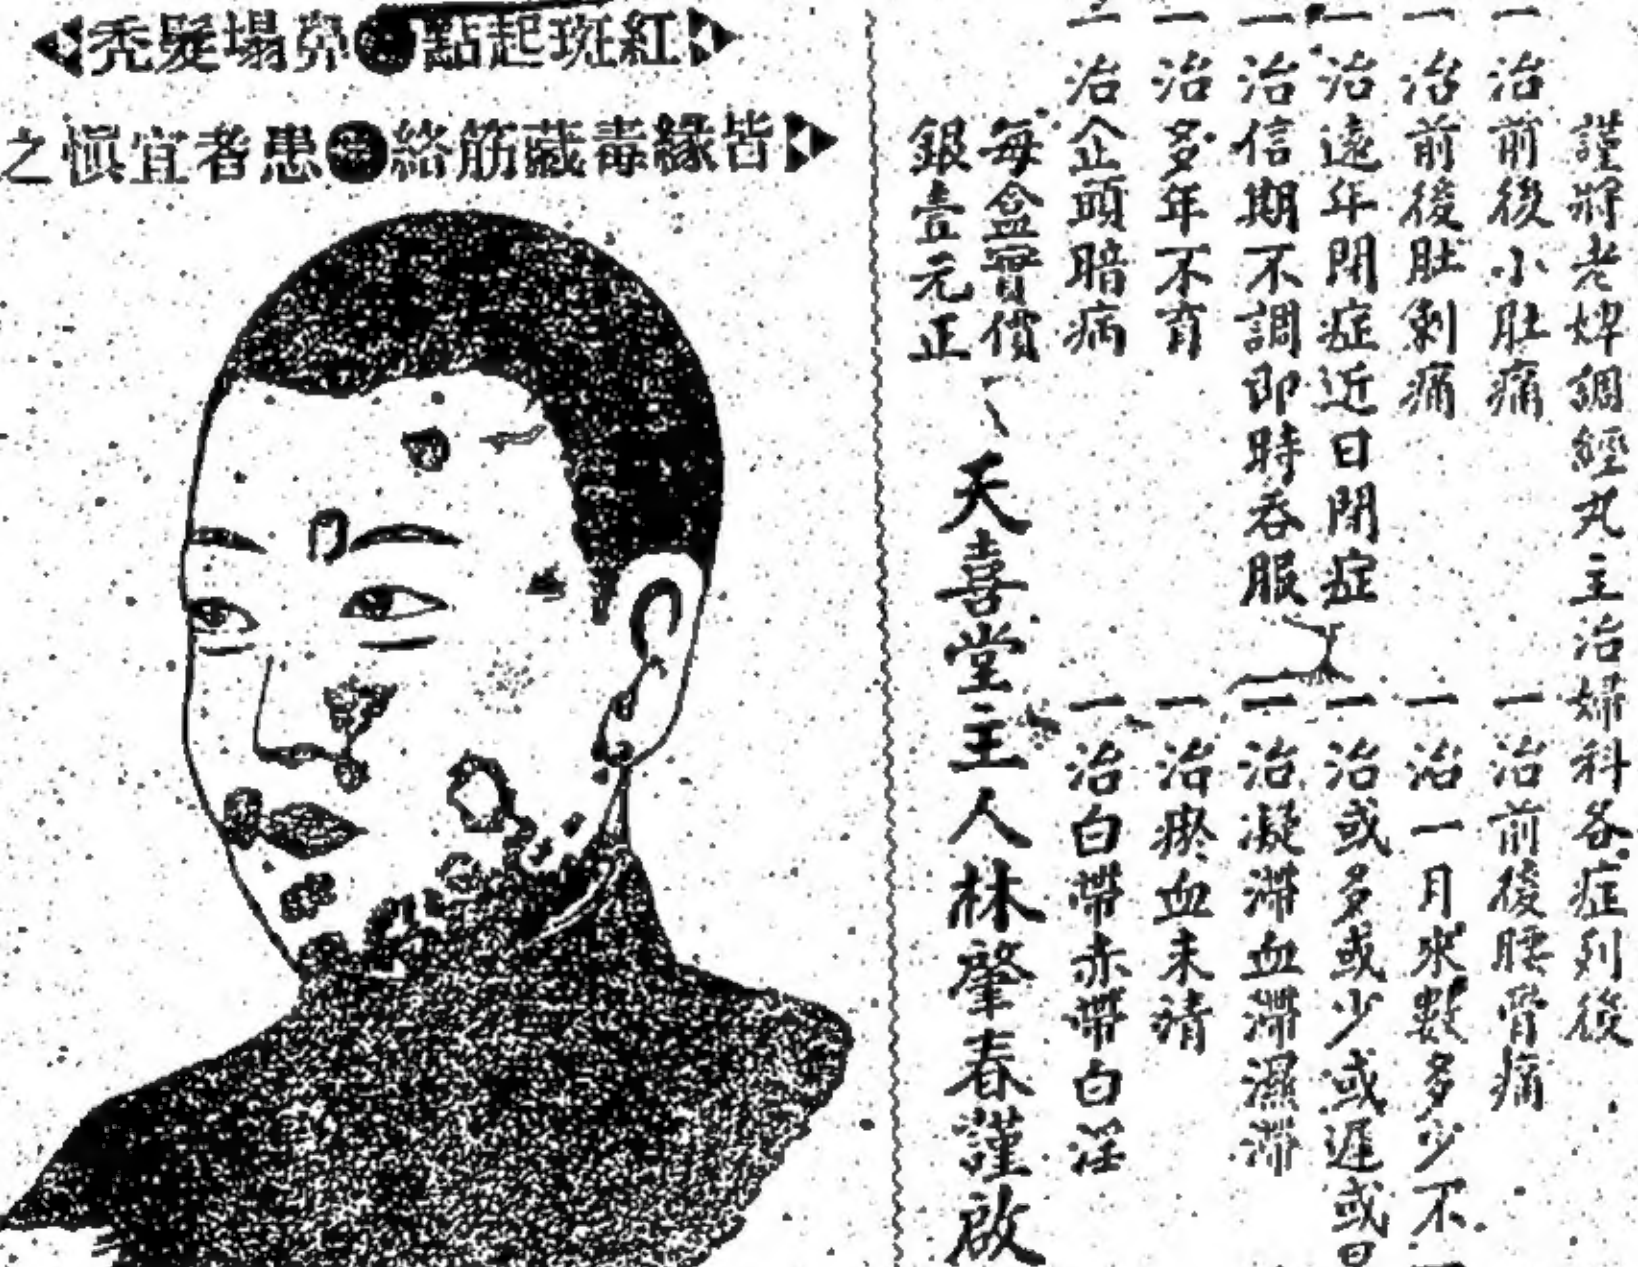 紅斑起點鼻塌髮禿
皆緣毒藏筋絡患者宜慎之
謹將老婢調經丸主治婦科各症列後
一治前後小肚痛
一治前後腰骨痛
一治前後肚刺痛
一治一月來數多少不
一治遠年閉症近日閉症
一治或多或少或遲或
一治信期不調即時吞服
一治凝滯血滯濕滯
一治多年不育
一治瘀血未清
一治企頭暗病
一治白帶赤帶白淫
每盒實價
銀壹元正
天喜堂主人林肇春謹啟